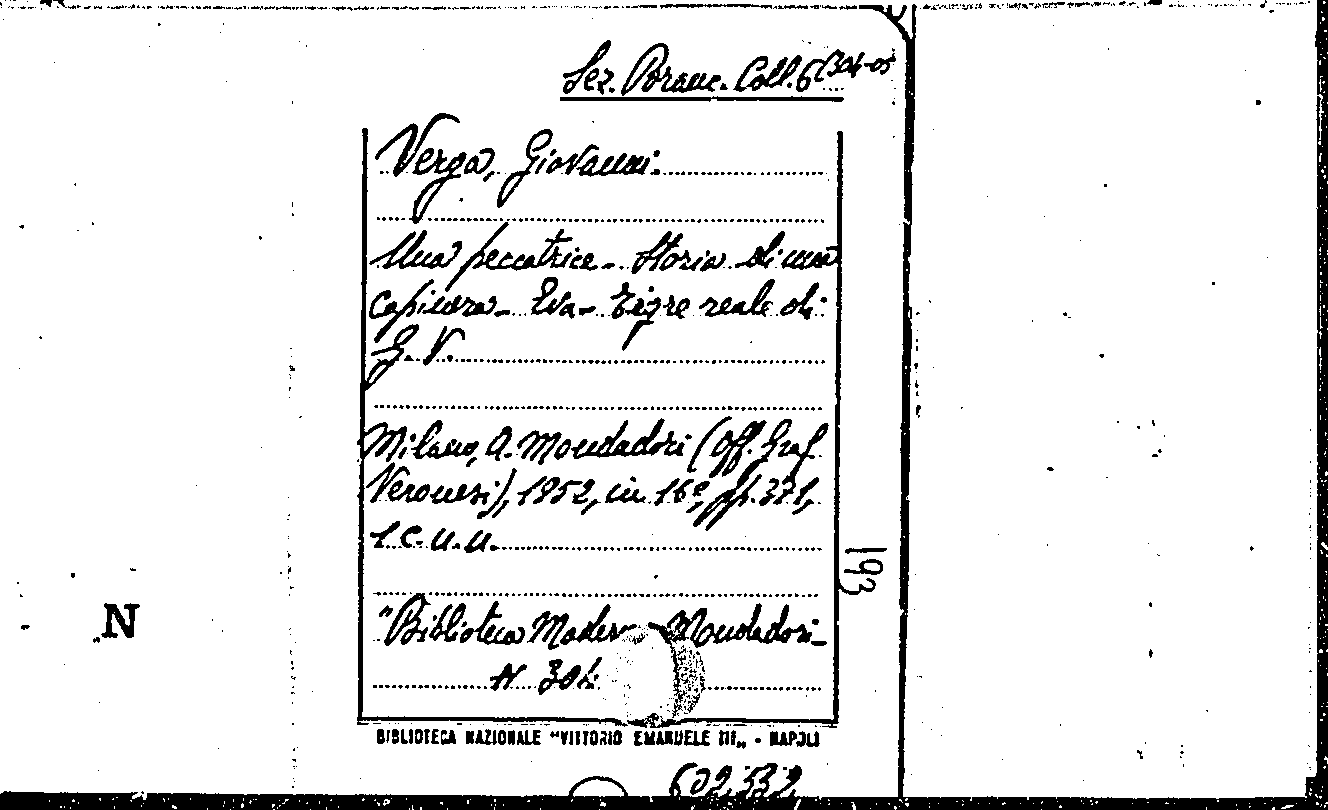 Sez. Branc. Coll. 6 (304-05
Verga, Giovanni.
Una peccatrice - Storia di una
capinera - Eva - Tigre reale di
G. V.
Milano, A. Mondadori (Off. Graf.
Veronesi), 1952, in 16°, pp. 371,
1 c. n. n.
193
N
"Biblioteca Moderna Mondadori
N 304
BIBLIOTECA NAZIONALE "VITTORIO EMANUELE III„ - NAPOLI
602532